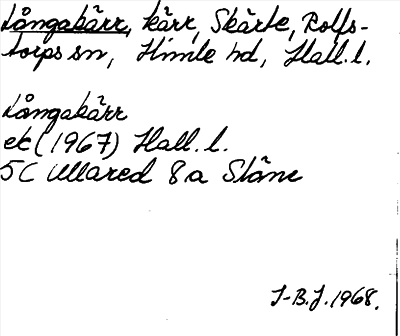 Långakärr, kärr, Skärte, Rolfs-
torps sn, Himle hd, Hall. l.
Långakärr
ek (1967) Hall. l.
5C Ullared 8a Släne
J-B.J. 1968.